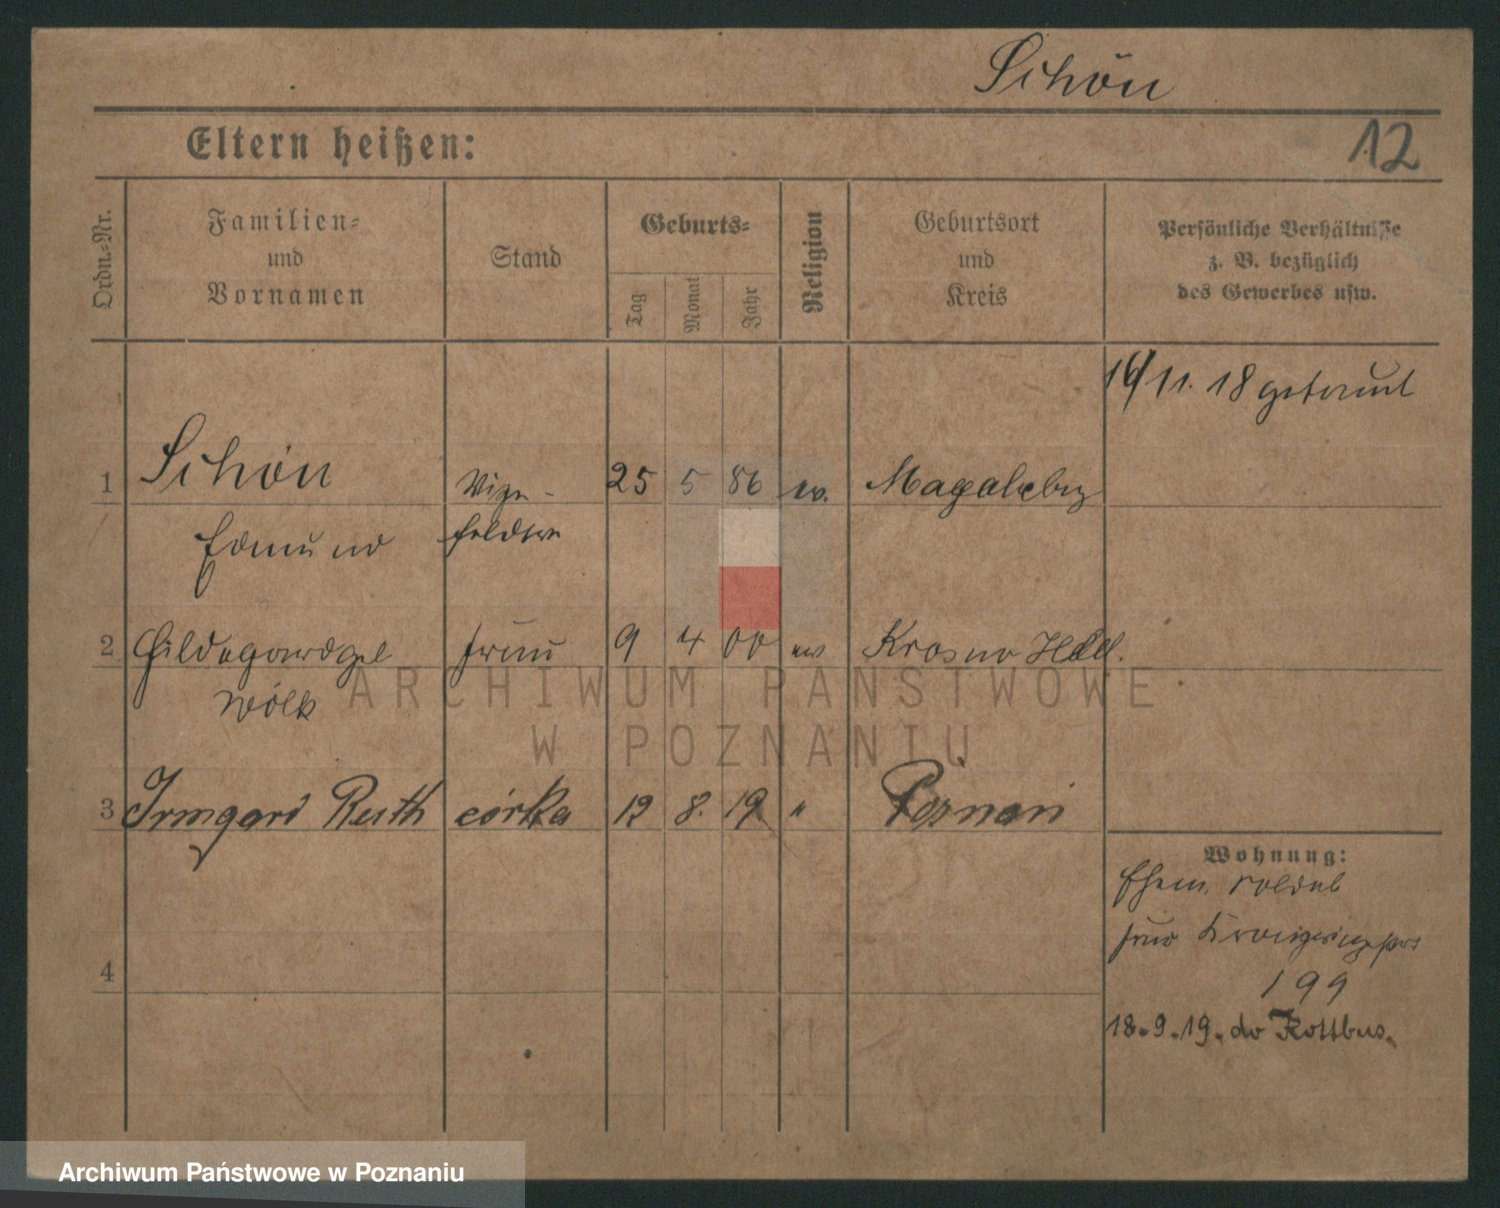 Schön
Eltern heißen:
12
Ordn.-Nr.
Familien-
und
Vornamen
Stand
Geburts-
Tag
Monat
Jahr
Religion
Geburtsort
und
Kreis
Persönliche Verhältnisse
z. B. bezüglich
des Gewerbes usw.
16/11. 18 getraut
1 Schön Vize- 25 5 86 ev. Magdeburg
Edmund feldw
2 Hildegard geb Frau 9 4 00 ev Krosno
Wölk
ARCHIWUM PAŃSTWOWE
W POZNANIU
3 Irmgard Ruth córka 12 8. 19 " Poznań
Wohnung:
Ehem.
199
4
18.9.19. do Kottbus.
Archiwum Państwowe w Poznaniu